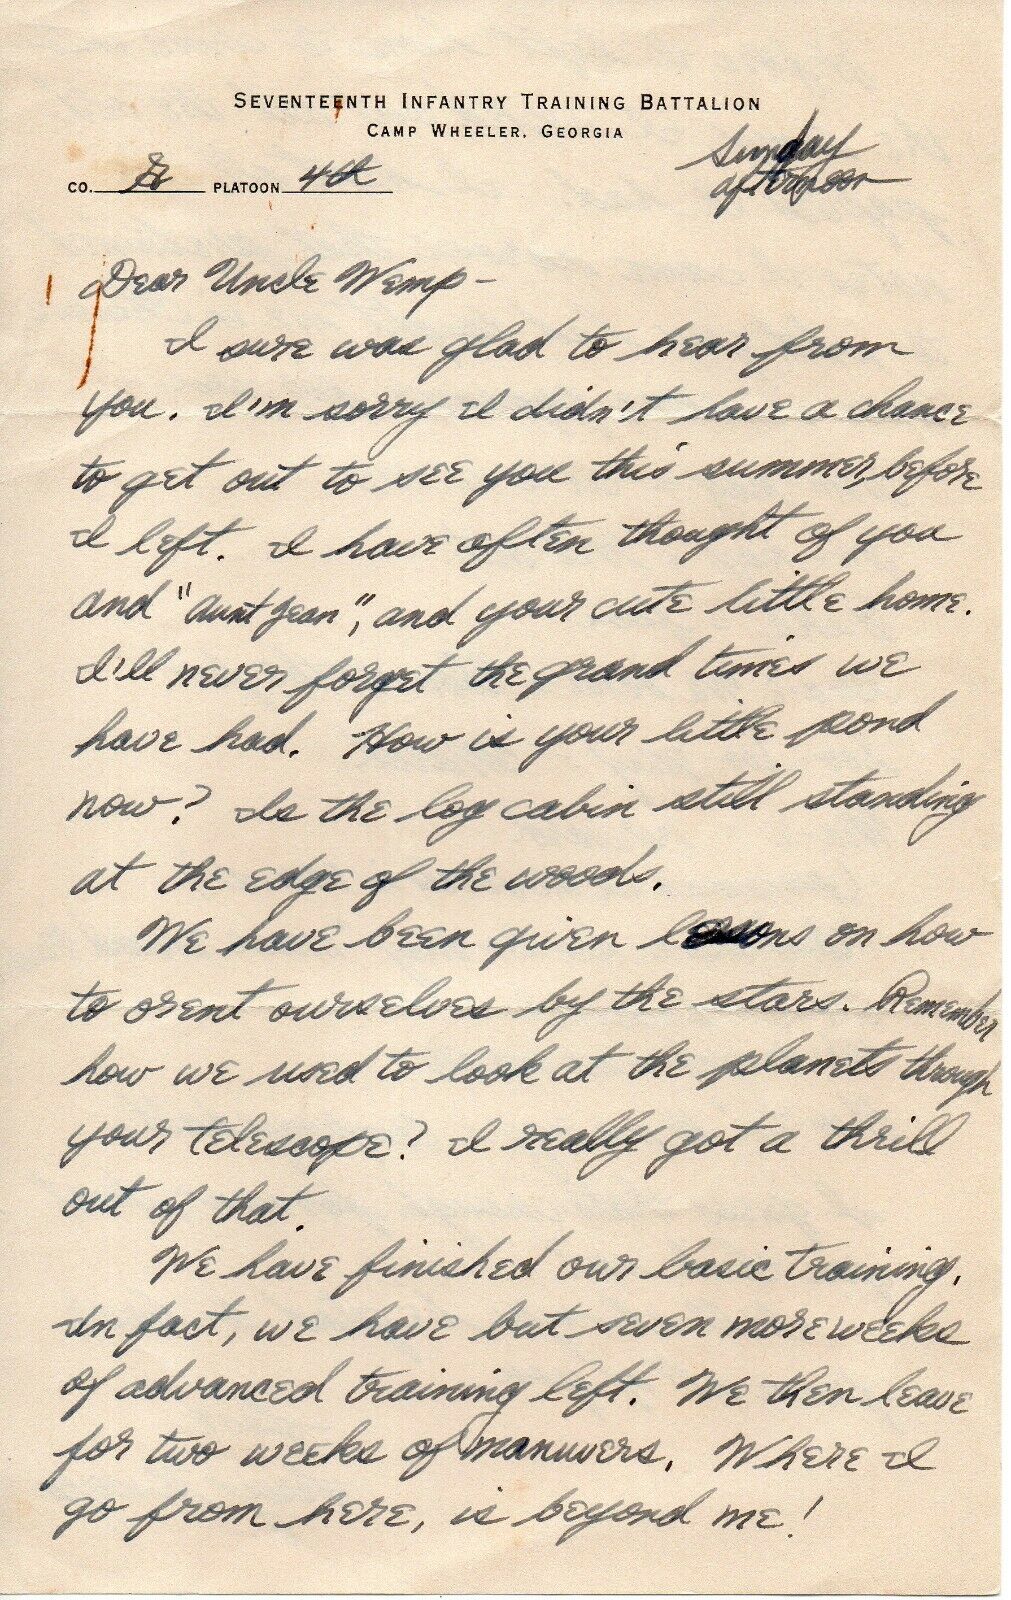 SEVENTEENTH INFANTRY TRAINING BATTALION
CAMP WHEELER, GEORGIA
Sunday
afternoon
CO. PLATOON 4th
Dear Uncle Wemp-
I sure was glad to hear from
you. I'm sorry I didn't have a chance
to get out to see you this summer, before
I left. I have often thought of you
and "Aunt Jean", and your cute little home.
I'll never forget the grand times we
have had. How is your little pond
now? Is the log cabin still standing
at the edge of the woods.
We have been given lessons on how
to orent ourselves by the stars. Remember
how we used to look at the planets through
your telescope? I really got a thrill
out of that.
We have finished our basic training.
In fact, we have but seven more weeks
of advanced training left. We then leave
for two weeks of manuvers. Where I
go from here, is beyond me!